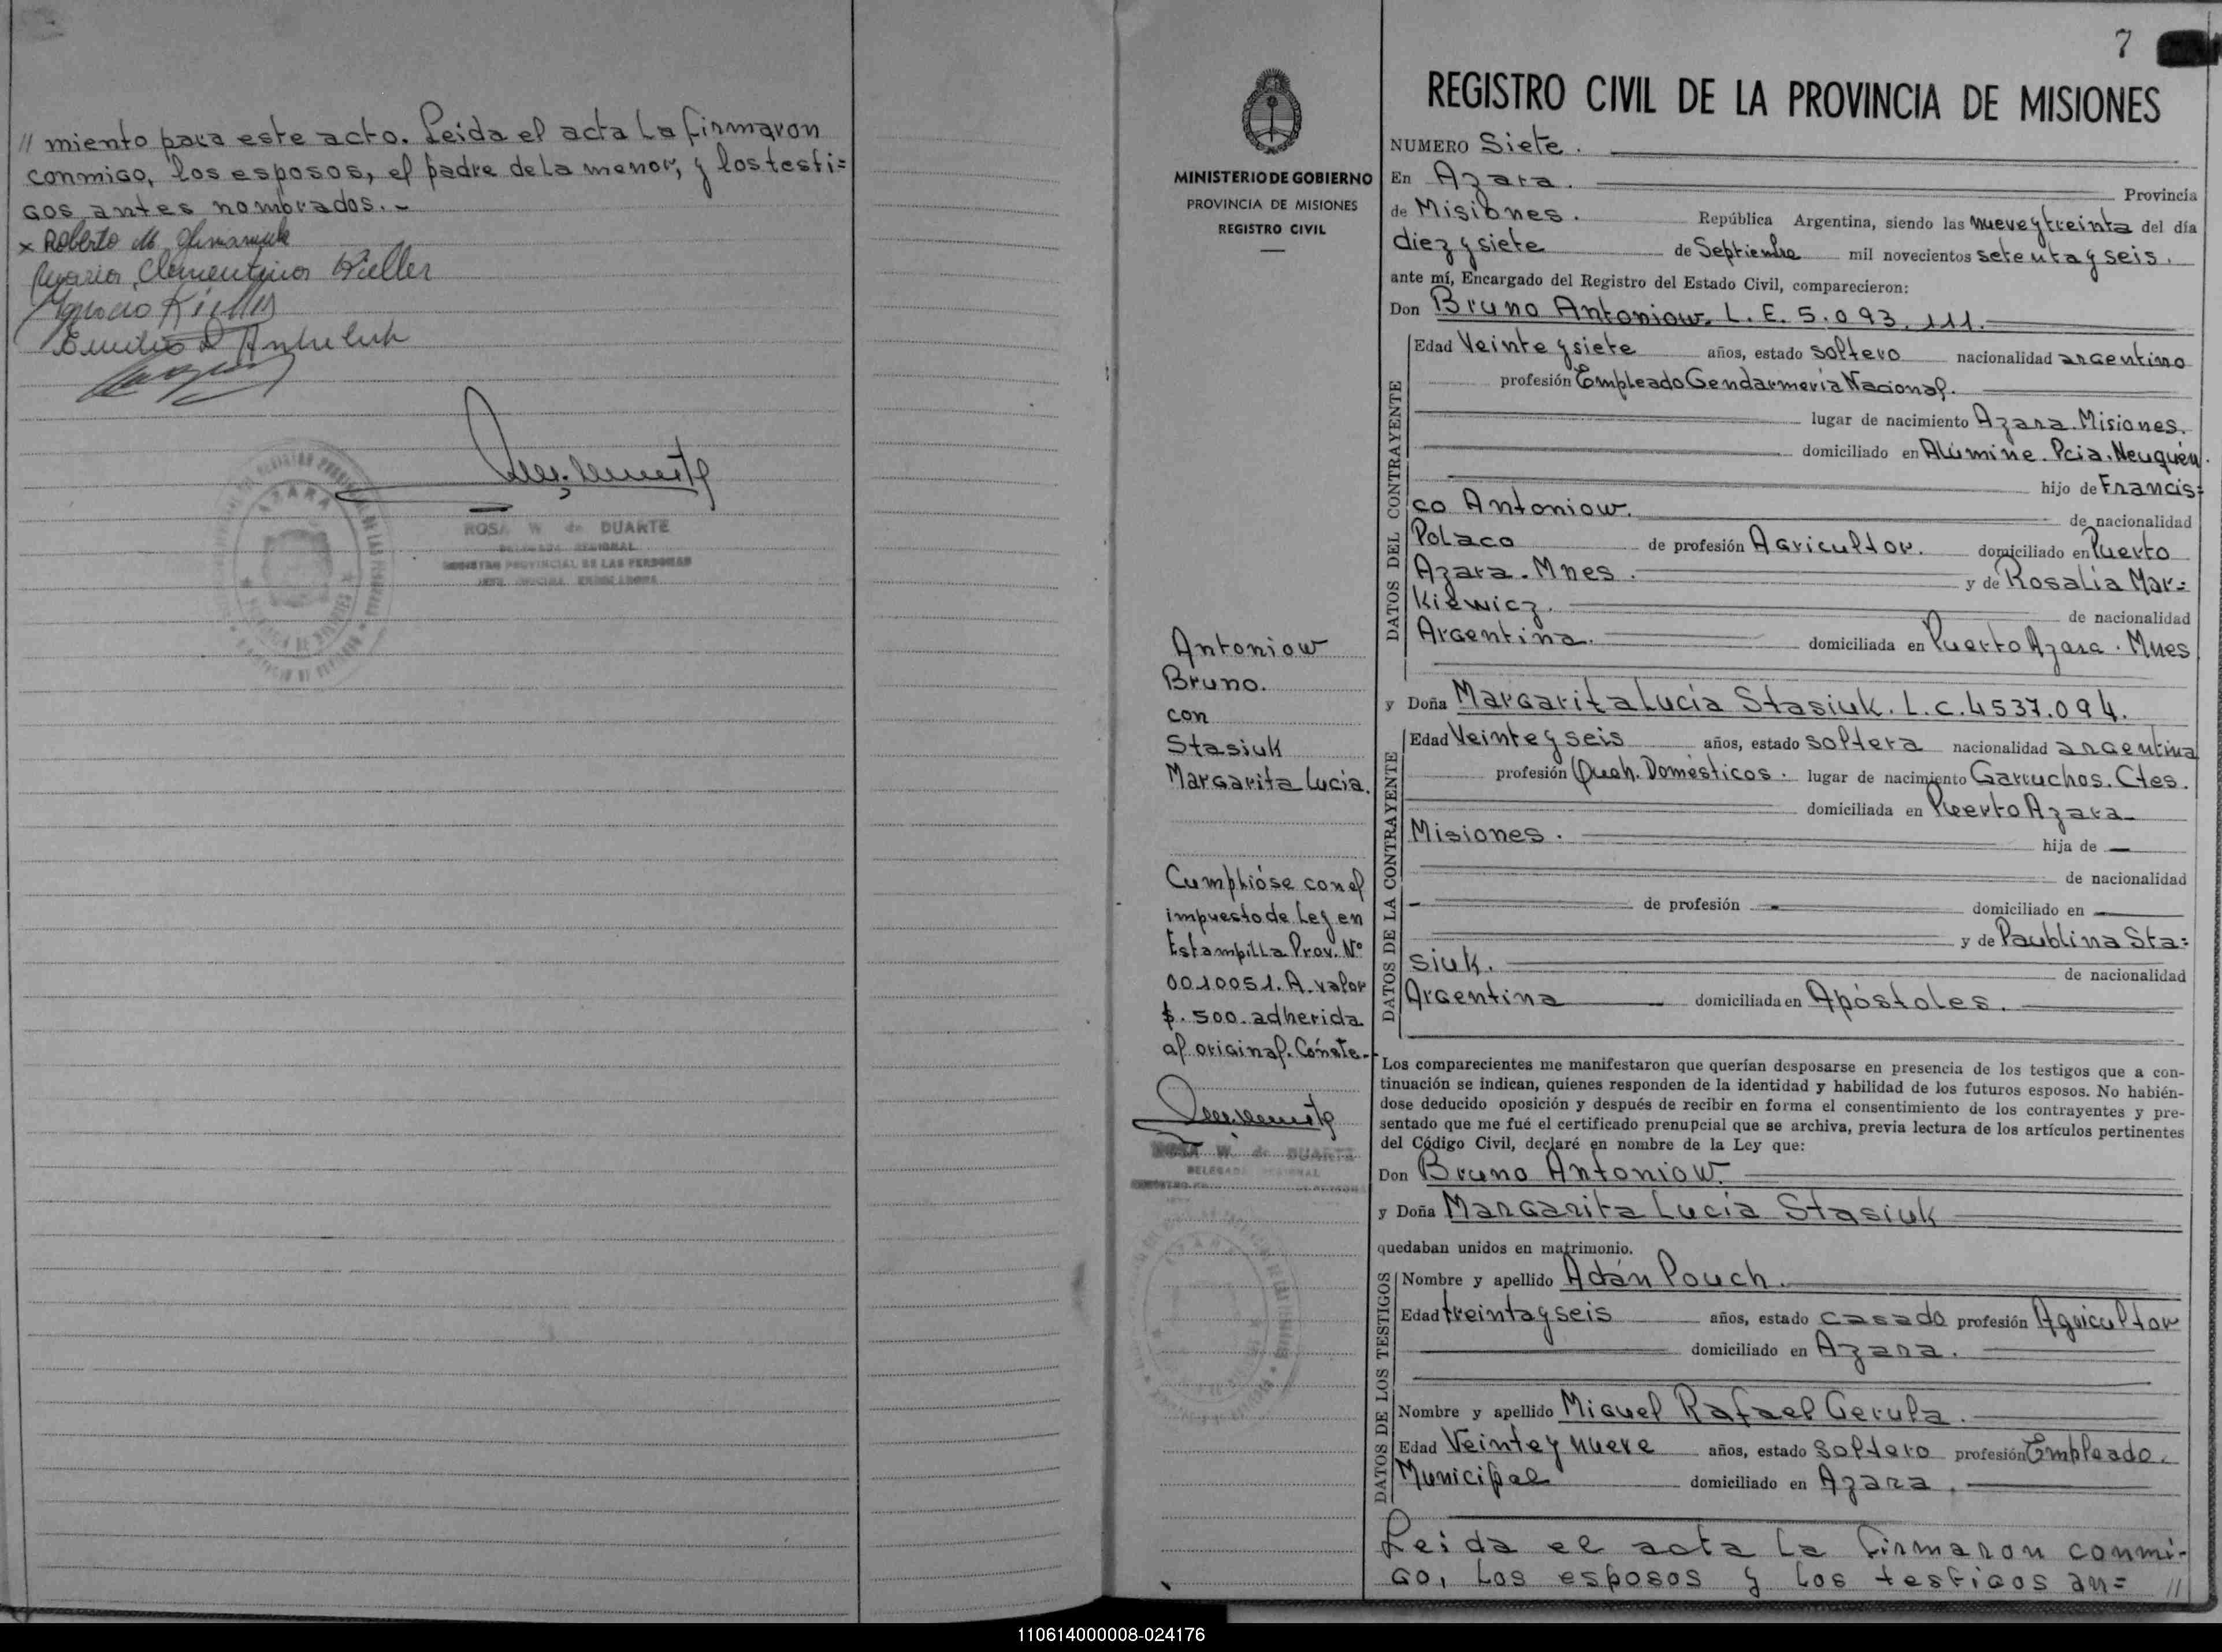 // miento para este acto. Leida el acta la firmaron
conmigo, los esposos, el padre de la menor, y los testi=
gos antes nombrados.-
x Roberto M.
Clementina Kieller
Ignacio
Emilio
ROSA W de DUARTE
DELEGADA REGIONAL
REGISTRO PROVINCIAL DE LAS PERSONAS
AZARA
7
MINISTERIO DE GOBIERNO
PROVINCIA DE MISIONES
REGISTRO CIVIL
Antoniow
Bruno.
con
Stasiuk
Margarita Lucía.
Cumplióse con el
impuesto de Ley en
Estampilla Prov. Nº
0010051. A. valor
$. 500. adherida
al original. Conste.-
ROSA W. de DUARTE
DELEGADA REGIONAL
REGISTRO CIVIL DE LA PROVINCIA DE MISIONES
NUMERO Siete.
En Azara. Provincia
de Misiones. República Argentina, siendo las nueve y treinta del día
diez y siete de Septiembre mil novecientos setenta y seis.
ante mí, Encargado del Registro del Estado Civil, comparecieron:
Don Bruno Antoniow. L. E. 5.093.111.
DATOS DEL CONTRAYENTE
Edad Veinte y siete años, estado soltero nacionalidad argentino
profesión Empleado Gendarmería Nacional.
lugar de nacimiento Azara. Misiones.
domiciliado en Alúmine. Pcia. Neuquén.
hijo de Francis=
co Antoniow. de nacionalidad
Polaco de profesión Agricultor. domiciliado en Puerto
Azara. Mnes. y de Rosalia Mar=
kiewicz. de nacionalidad
Argentina. domiciliada en Puerto Azara. Mnes
y Doña Margarita Lucía Stasiuk. L.C. 4537.094.
DATOS DE LA CONTRAYENTE
Edad Veinte y seis años, estado soltera nacionalidad argentina
profesión Queh. Domésticos. lugar de nacimiento Garruchos. Ctes.
domiciliada en Puerto Azara
Misiones. hija de —
de nacionalidad
de profesión domiciliado en
y de Paublina Sta=
siuk. de nacionalidad
Argentina domiciliada en Apóstoles.
Los comparecientes me manifestaron que querían desposarse en presencia de los testigos que a con-
tinuación se indican, quienes responden de la identidad y habilidad de los futuros esposos. No habién-
dose deducido oposición y después de recibir en forma el consentimiento de los contrayentes y pre-
sentado que me fué el certificado prenupcial que se archiva, previa lectura de los artículos pertinentes
del Código Civil, declaré en nombre de la Ley que:
Don Bruno Antoniow.
y Doña Margarita Lucía Stasiuk
quedaban unidos en matrimonio.
DATOS DE LOS TESTIGOS
Nombre y apellido Adán Pouch.
Edad treinta y seis años, estado casado profesión Agricultor
domiciliado en Azara.
Nombre y apellido Miguel Rafael Gerula.
Edad Veinte y nueve años, estado soltero profesión Empleado.
Municipal domiciliado en Azara.
Leida el acta la firmaron conmi-
go, los esposos y los testigos an= //
110614000008-024176